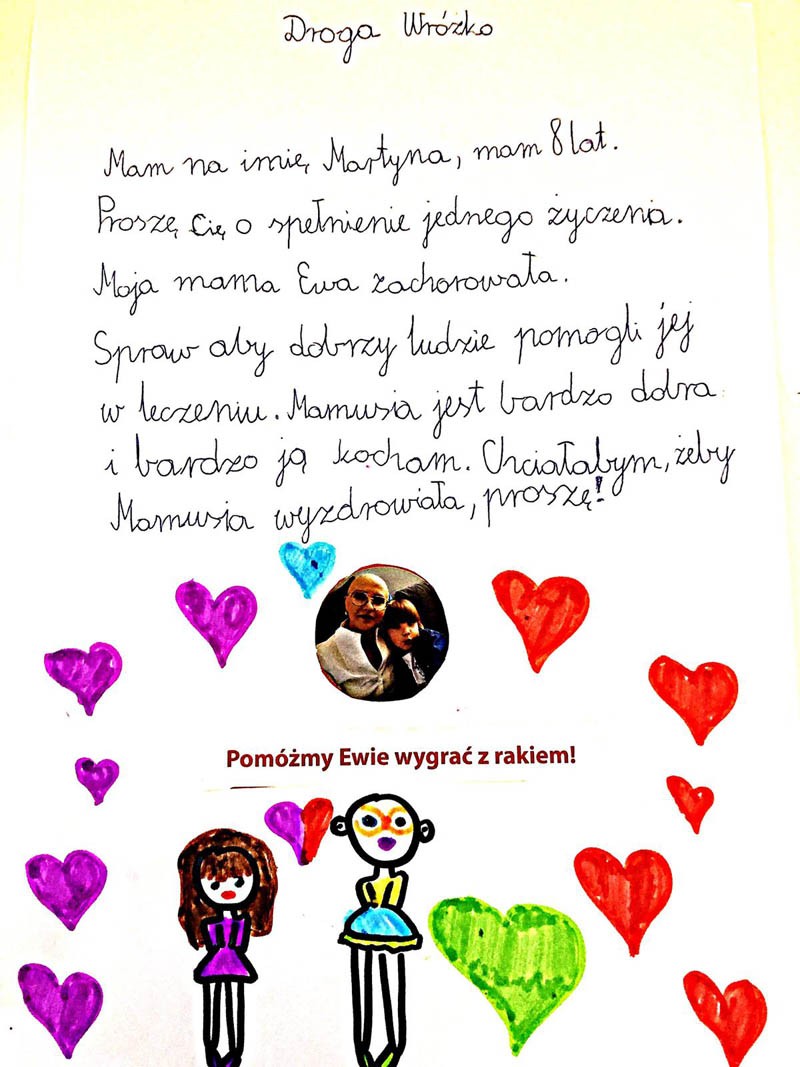 Droga Wróżko
Mam na imię Martyna, mam 8 lat.
Proszę Cię o spełnienie jednego życzenia.
Moja mama Ewa zachorowała.
Spraw aby dobrzy ludzie pomogli jej
w leczeniu. Mamusia jest bardzo dobra
i bardzo ją kocham. Chciałabym, żeby
Mamusia wyzdrowiała, proszę!
Pomóżmy Ewie wygrać z rakiem!